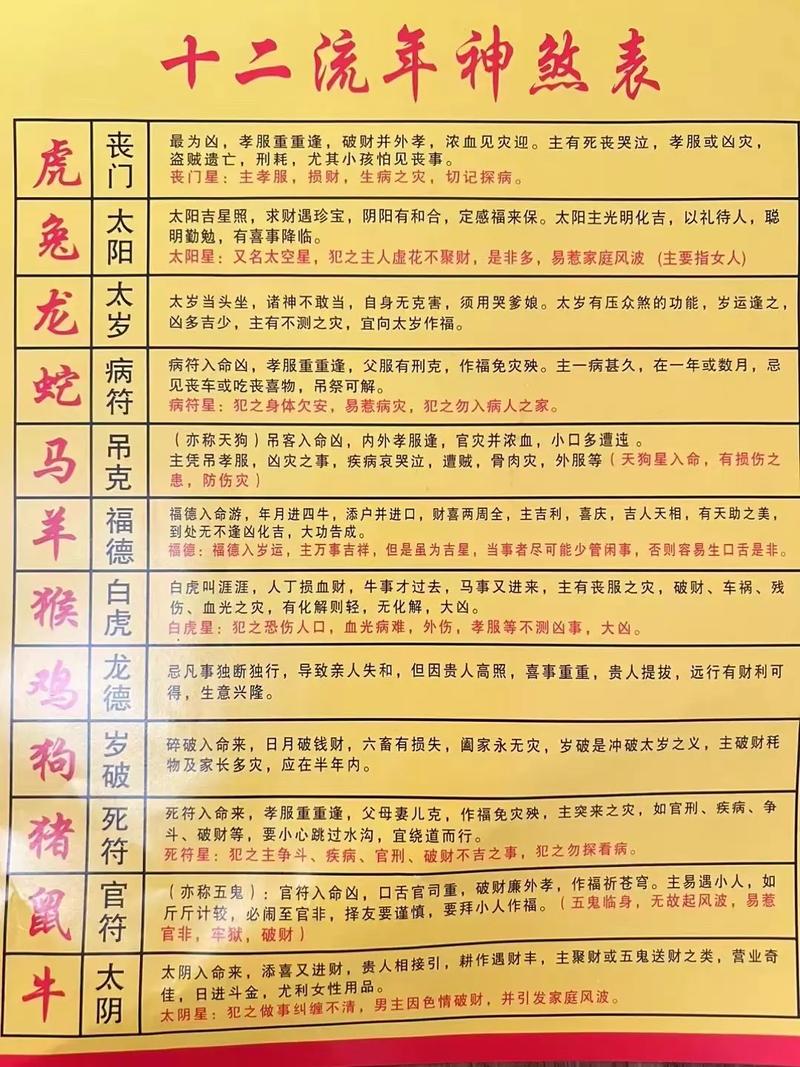 十二流年神煞表
虎
丧门
最为凶，孝服重重逢，破财并外孝，浓血见灾迎。主有死丧哭泣，孝服或凶灾，
盗贼遗亡，刑耗，尤其小孩怕见丧事。
丧门星：主孝服，损财，生病之灾，切记探病。
兔
太阳
太阳吉星照，求财遇珍宝，阴阳有和合，定感福来保。太阳主光明化吉，以礼待人，聪
明勤勉，有喜事降临。
太阳星：又名太空星，犯之主人虚花不聚财，是非多，易惹家庭风波（主要指女人）
龙
太岁
太岁当头坐，诸神不敢当，自身无克害，须用哭爹娘。太岁有压众煞的功能，岁运逢之，
凶多吉少，主有不测之灾，宜向太岁作福。
蛇
病符
病符入命凶，孝服重重逢，父服有刑克，作福免灾殃。主一病甚久，在一年或数月，忌
见丧车或吃丧喜物，吊祭可解。
病符星：犯之身体欠安，易惹病灾，犯之勿入病人之家。
马
吊克
（亦称天狗）吊客入命凶，内外孝服逢，官灾并浓血，小口多遭迍。
主凭吊孝服，凶灾之事，疾病哀哭泣，遭贼，骨肉灾，外服等（天狗星入命，有损伤之
患，防伤灾）
羊
福德
福德入命游，年月进四牛，添户并进口，财喜两周全，主吉利，喜庆，吉人天相，有天助之美，
到处无不逢凶化吉，大功告成。
福德：福德入岁运，主万事吉祥，但是虽为吉星，当事者尽可能少管闲事，否则容易生口舌是非。
猴
白虎
白虎叫涯涯，人丁损血财，牛事才过去，马事又进来，主有丧服之灾，破财、车祸、残
伤、血光之灾，有化解则轻，无化解，大凶。
白虎星：犯之恐伤人口，血光病难，外伤，孝服等不测凶事，大凶。
鸡
龙德
忌凡事独断独行，导致亲人失和，但因贵人高照，喜事重重，贵人提拔，远行有财利可
得，生意兴隆。
狗
岁破
碎破入命来，日月破钱财，六畜有损失，阖家永无灾，岁破是冲破太岁之义，主破财秏
物及家长多灾，应在半年内。
猪
死符
死符入命来，孝服重重逢，父母妻儿克，作福免灾殃，主突来之灾，如官刑、疾病、争
斗、破财等，要小心跳过水沟，宜绕道而行。
死符星：犯之主争斗、疾病、官刑、破财不吉之事，犯之勿探看病。
鼠
官符
（亦称五鬼）：官符入命凶，口舌官司重，破财廉外孝，作福祈苍穹。主易遇小人，如
斤斤计较，必闹至官非，择友要谨慎，要拜小人作福。（五鬼临身，无故起风波，易惹
官非，牢狱，破财）
牛
太阴
太阴入命来，添喜又进财，贵人相接引，耕作遇财丰，主聚财或五鬼送财之类，营业奇
佳，日进斗金，尤利女性用品。
太阴星：犯之做事纠缠不清，男主因色情破财，并引发家庭风波。